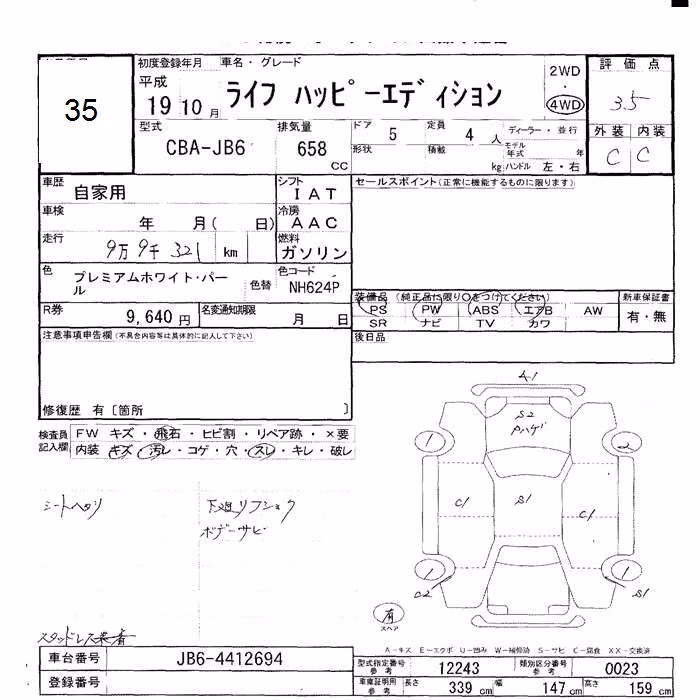 35
初度登録年月 車名・グレード
平成 19 10 月 ライフ ハッピーエディション
2WD ・ 4WD
評価点
3.5
外装 内装
C C
型式 CBA-JB6
排気量 658 CC
ドア 5 定員 4 人
形状 積載 kg
ディーラー・並行
モデル年式 年
ハンドル 左・右
車歴 自家用
シフト IAT
セールスポイント(正常に機能するものに限ります)
車検 年 月( 日)
冷房 AAC
走行 9万9千321 km
燃料 ガソリン
色 プレミアムホワイト・パール 色替
色コード NH624P
装備品 (純正品に限り○をつけてください)
PS PW ABS エアB AW
SR ナビ TV カワ
新車保証書
有・無
R券 9,640 円
名変通知期限 月 日
注意事項申告欄(不具合内容等は具体的に記入して下さい)
後日品
修復歴 有〔箇所 〕
検査員記入欄
FW キズ・飛石・ヒビ割・リペア跡・×要
内装 キズ・汚レ・コゲ・穴・スレ・キレ・破レ
シートヘタリ
下廻リフショク
ボデーサビ
スタッドレス装着
A1
S2
Pハゲ
1
2
C1
S1
C1
1
1
C2
S1
有
スペア
A-キズ E-エクボ U-凹み W-補修跡 S-サビ C-腐食 XX-交換済
車台番号 JB6-4412694
登録番号
型式指定番号 参考 12243
類別区分番号 参考 0023
車庫証明用 参考 長さ 339 cm 幅 147 cm 高さ 159 cm